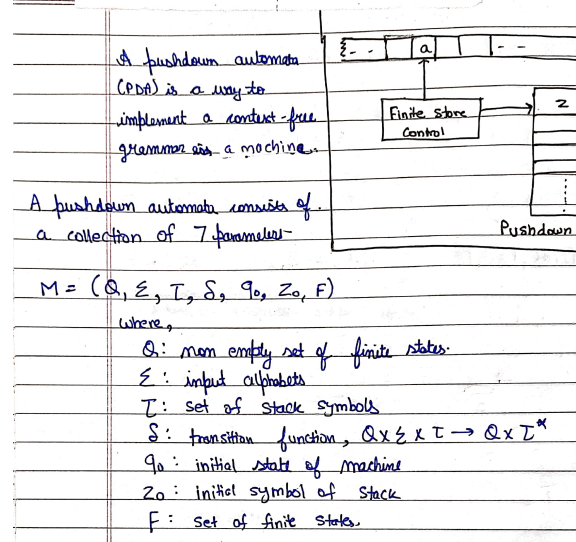 A pushdown automata
(PDA) is a way to
implement a context-free
grammar as a machine.
{- - a - -
Finite store
control
Z
Pushdown
A pushdown automata consists of
a collection of 7 parameters-
M = (Q, Σ, Τ, δ, q0, Z0, F)
where,
Q: non empty set of finite states.
Σ: input alphabets
Τ: set of stack symbols
δ: transition function, Q x Σ x Τ → Q x Τ*
q0: initial state of machine
Z0: initial symbol of stack
F: set of finite states.